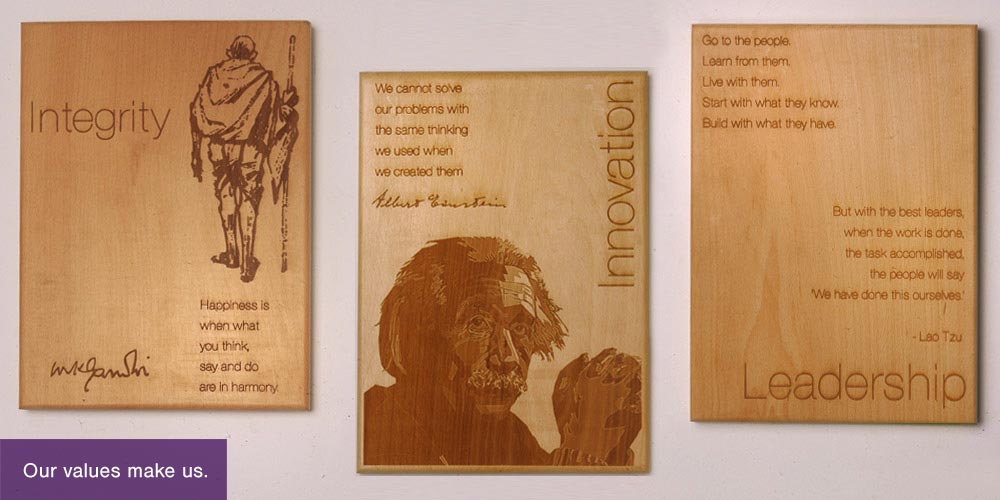 Integrity
Happiness is
when what
you think,
say and do
are in harmony.
mkgandhi
We cannot solve
our problems with
the same thinking
we used when
we created them
Albert Einstein
Innovation
Go to the people.
Learn from them.
Live with them.
Start with what they know.
Build with what they have.
But with the best leaders,
when the work is done,
the task accomplished,
the people will say
'We have done this ourselves.'
- Lao Tzu
Leadership
Our values make us.